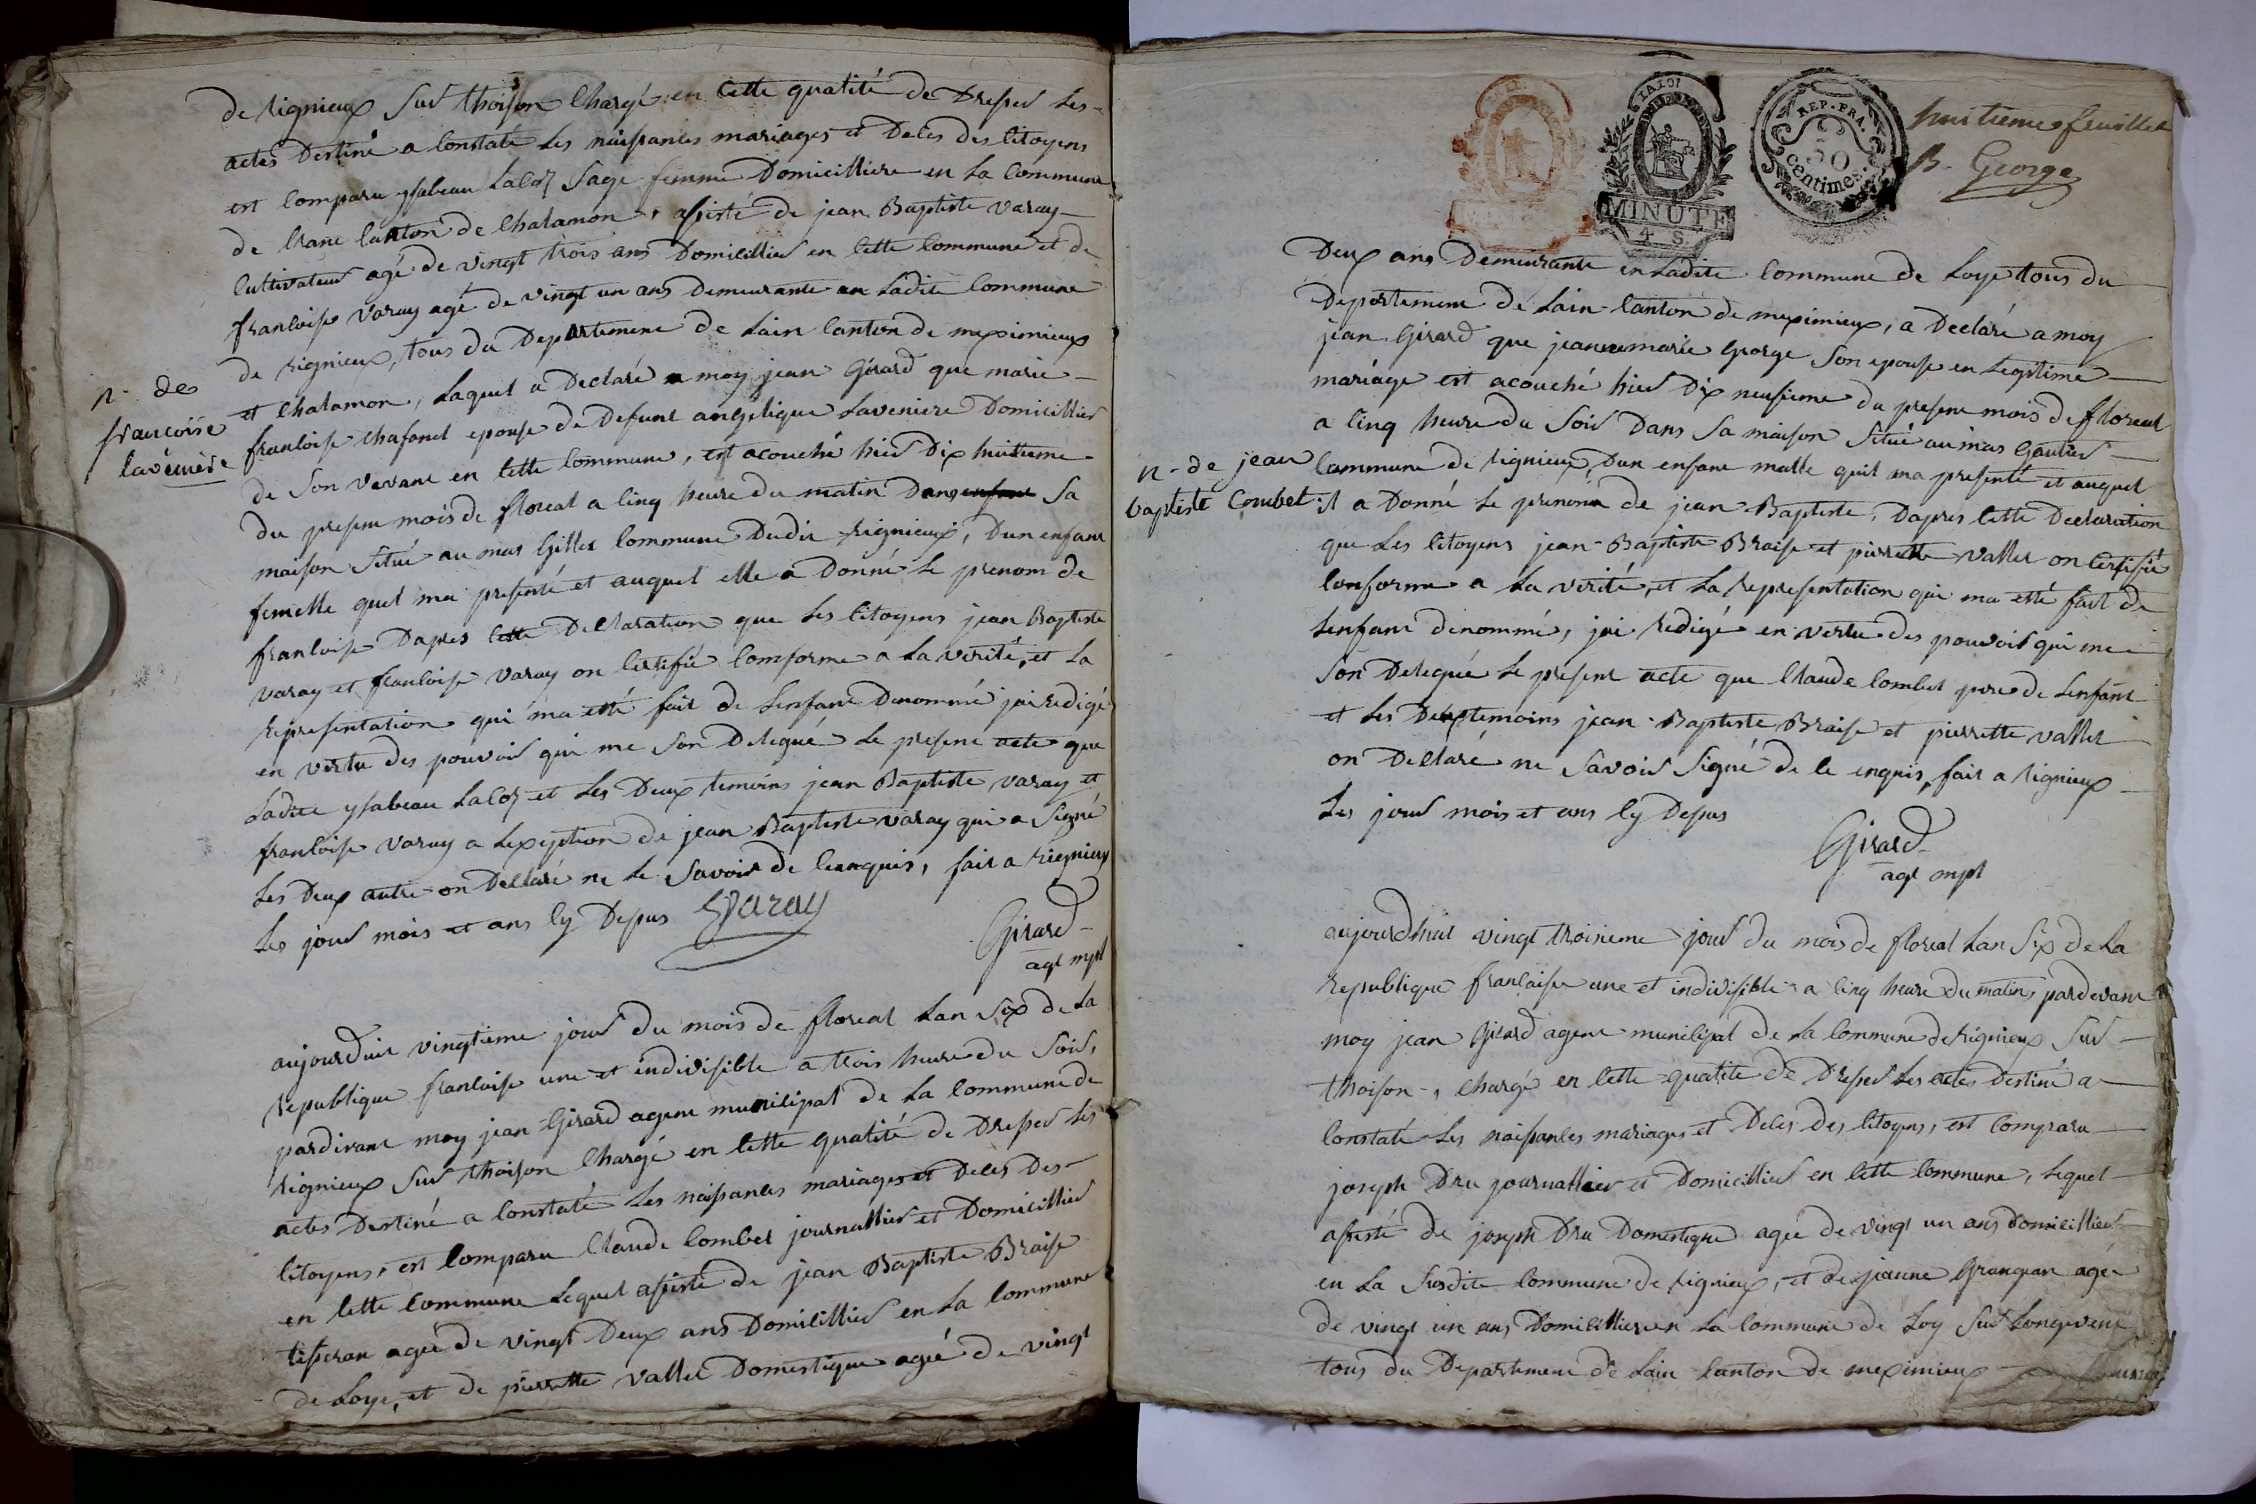 de rignieux sur thoison chargé en cette qualité de dresser les
actes destiné a constaté les naissances mariages et deces des citoyens
est comparu ysabeau laloz sage femme domicilliere en la commune
de crans canton de chalamon, assisté de jean Baptiste varay
cultivateur agé de vingt trois ans domicillier en cette commune et de
francoise varay agé de vingt un ans demeurante en ladite commune
de rignieux, tous du departement de lain canton de meximieux
et chalamon, laquel a declaré a moy jean Girard que marie
n. de
francoise
lavenière
francoise chafanel epouse de defunt angelique laveniere domicillier
de son vivant en cette commune, est acouché hier dix huitieme
du present mois de floreal a cinq heure du matin dans sa
maison situé au mas Gillet commune dudit rignieux, dun enfant
femelle quel ma presenté et auquel elle a donné le prenom de
francoise dapres cette declaration que les citoyens jean Baptiste
varay et francoise varay on certifié comforme a la verité, et la
representation qui ma etté fait de lenfant denommé jai redigé
en vertu des pouvoir qui me son delegué le present acte que
ladite ysabeau laloz et les deux temoins jean Baptiste varay et
francoise varay a lexeption de jean Baptiste varay qui a signé
les deux autre on declaré ne le savoir de ce enquis, fait a rignieux
les jour mois et ans cy depus Varay
Girard
agt mpl
aujourduit vingtieme jour du mois de floreal lan six de la
republique francoise une et indivisible a trois heure du soir,
pardevant moy jean Girard agent municipal de la commune de
rignieux sur thoison chargé en cette qualité de dresser les
actes destiné a constaté les naissances mariages et deces des
citoyens, est comparu claude combet journallier et domicillier
en cette commune lequel assisté de jean Baptiste Braise
tisseran agée de vingt deux ans domicillier en la commune
de loye, et de pierrette vallet domestique agée de vingt
huitieme feuillet
B. George
LA LOI
MINUTE
4 S.
REP. FRA.
50
centimes.
deux ans demeurante en ladite commune de loye tous du
departement de lain canton de meximieux, a declaré a moy
jean Girard que jeanne marie George son epouse en legitime
mariage est acouché hier dix neufieme du present mois de floreal
a cinq heure du soir dans sa maison situé au mas Gautier
n. de jean
baptiste Combet
commune de rignieux, dun enfant malle quil ma presenté et auquel
il a donné le prenom de jean Baptiste, dapres cette declaration
que les citoyens jean Baptiste Braise et pierrette vallet on certifié
conforme a la verité, et la representation qui ma etté fait de
lenfant denommé, jai redigé en vertu des pouvoir qui me
son delegué le present acte que claude combet pere de lenfant
et les deux temoins jean Baptiste Braise et pierrette vallet
on declaré ne savoir signé de ce enquis, fait a rignieux
les jour mois et ans cy depus
Girard
agt mpl
aujourdhuit vingt troisieme jour du mois de floreal lan six de la
republique francaise une et indivisible a cinq heure du matin, pardevant
moy jean Girard agent municipal de la commune de rignieux sur
thoison, chargé en cette qualité de dresser les actes destiné a
constaté les naissances mariages et deces des citoyens, est comparu
joseph dru journallier et domicillier en cette commune, lequel
assisté de joseph dru domestique agée de vingt un ans domicillier
en la susdite commune de rignieux, et de jeanne Grangean agée
de vingt un ans domicilliere en la commune de Loy sur
tous du departement de lain canton de meximieux